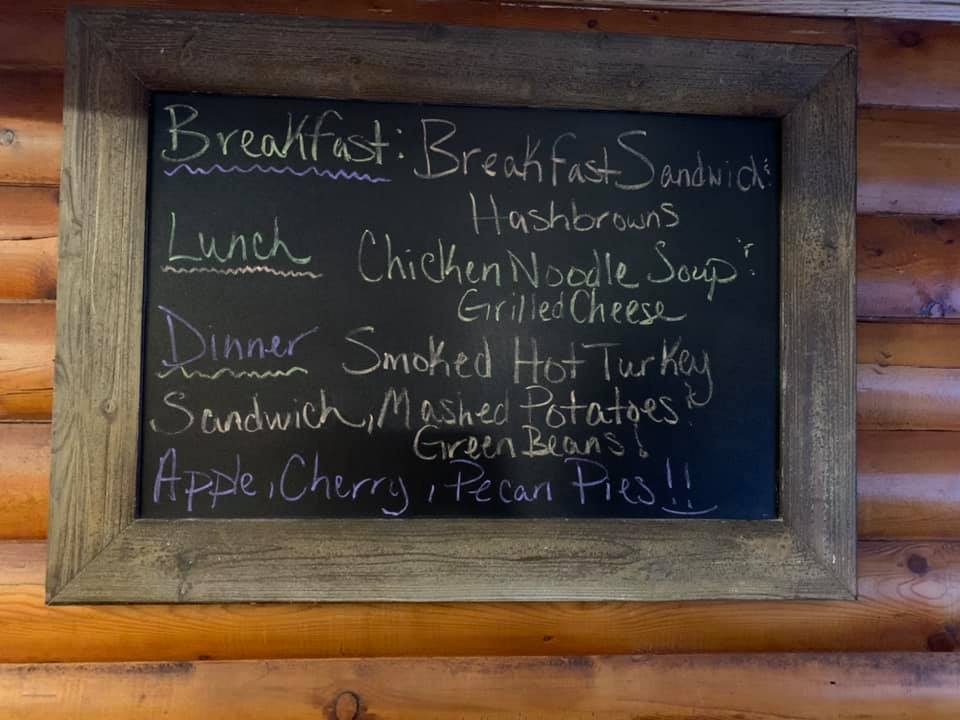 Breakfast: Breakfast Sandwich &
Hashbrowns
Lunch Chicken Noodle Soup &
Grilled Cheese
Dinner Smoked Hot Turkey
Sandwich, Mashed Potatoes &
Green Beans!
Apple, Cherry, Pecan Pies!!